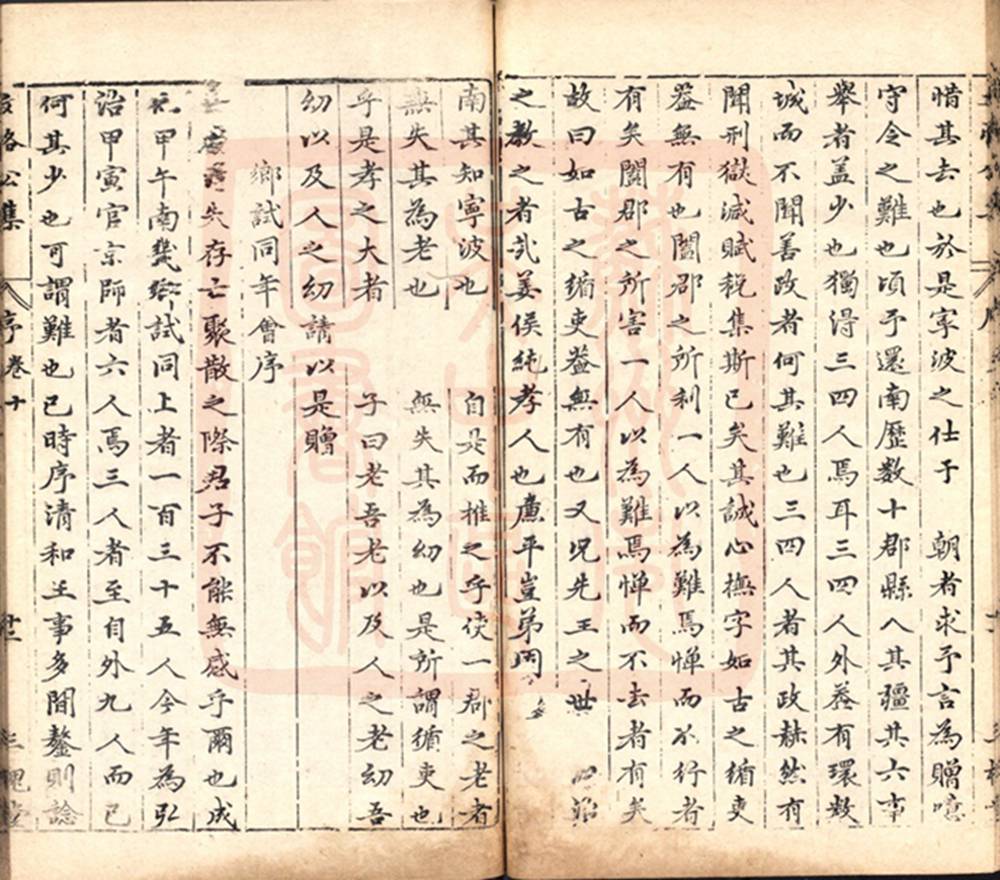 惜其去也於是寧波之仕于　朝者求予言為贈噫
守令之難也頃予還南歷數十郡縣入其疆其六事
舉者蓋少也獨得三四人焉耳三四人外蓋有環數
城而不聞善政者何其難也三四人者其政赫然有
聞刑獄減賦稅集斯已矣其誠心撫字如古之循吏
蓋無有也闔郡之所利一人以為難焉憚而不行者
有矣闔郡之所害一人以為難焉憚而不去者有矣
故曰如古之循吏蓋無有也又況先王之世
之教之者哉姜侯純孝人也廉平豈弟
南其知寧波也　　自是而推之乎使一郡之老者
無失其為老也　　無失其為幼也是所謂循吏也
乎是孝之大者　　子曰老吾老以及人之老幼吾
幼以及人之幼請以是贈
鄉試同年會序
失存亡聚散之際君子不能無感乎爾也成
化甲午南畿鄉試同上者一百三十五人今年為弘
治甲寅官京師者六人焉三人者至自外九人而已
何其少也可謂難也已時序清和王事多間鏊則諗
文恪公集　序卷十　廿二　三槐堂